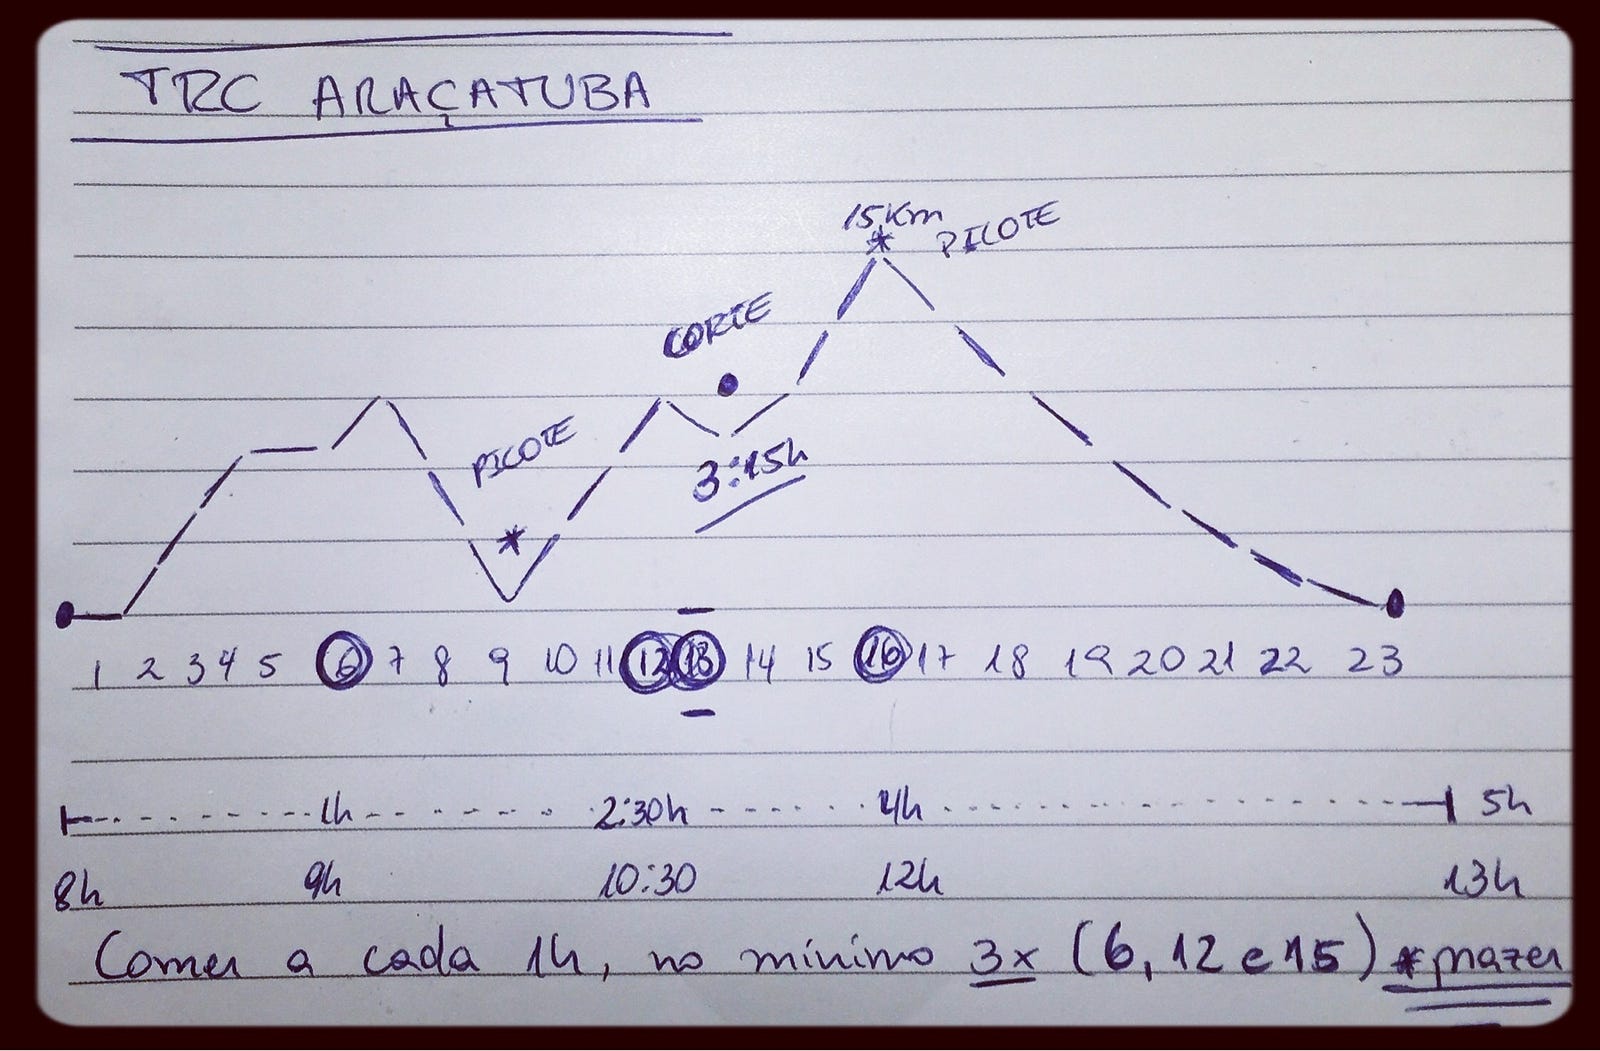 TRC ARAÇATUBA
15Km
* PICOTE
CORTE
PICOTE
3:15h
*
1 2 3 4 5 6 7 8 9 10 11 12 13 14 15 16 17 18 19 20 21 22 23
1h 2:30h 4h 5h
8h 9h 10:30 12h 13h
Comer a cada 1h, no mínimo 3x (6, 12 e 15) *prazer